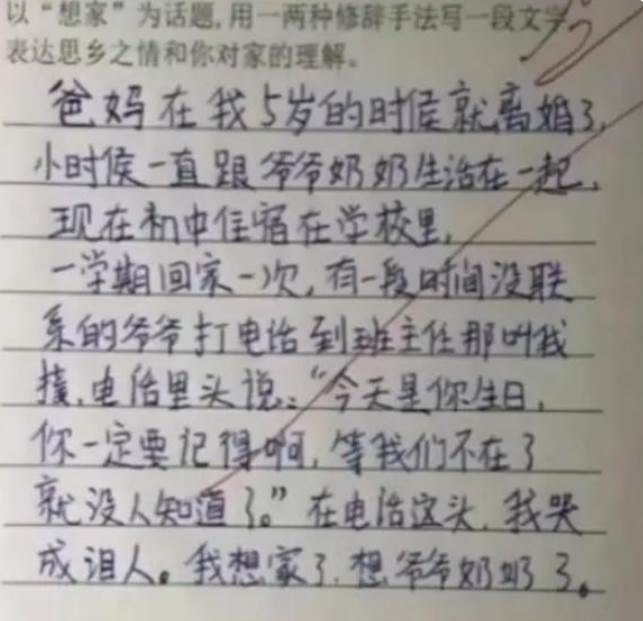 以“想家”为话题,用一两种修辞手法写一段文字,
表达思乡之情和你对家的理解。
爸妈在我5岁的时候就离婚了,
小时候一直跟爷爷奶奶生活在一起,
现在初中住宿在学校里,
一学期回家一次,有一段时间没联
系的爷爷打电话到班主任那叫我
接,电话里头说:“今天是你生日,
你一定要记得啊,等我们不在了
就没人知道了。”在电话这头,我哭
成泪人。我想家了,想爷爷奶奶了。